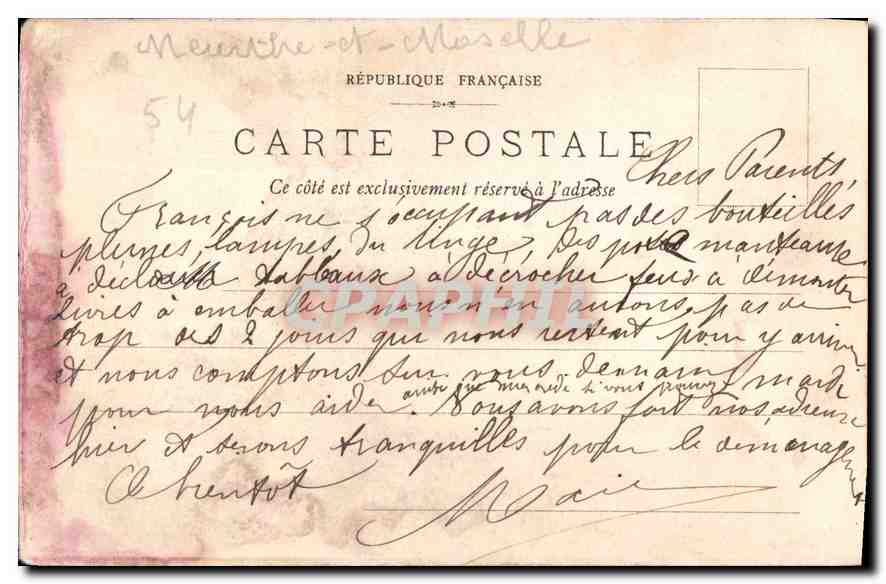 Meurthe-et-Moselle
54
RÉPUBLIQUE FRANÇAISE
CARTE POSTALE
Ce côté est exclusivement réservé à l'adresse
Chers Parents,
François ne s'occupant pas des bouteilles
pleines, lampes, du linge, des manteaux
à tableaux à décrocher feux à démonter
livres à emballer nous n'en aurons pas de
trop des 2 jours qui nous restent pour y arriver
et nous comptons sur vous demain mardi
si vous pouvez
pour nous aider. Nous avons fait nos adieux
hier et serons tranquilles pour le déménagement
A bientôt Marie
CPAPHIL